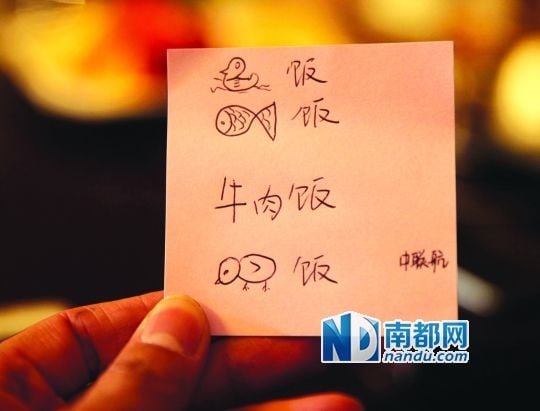 饭
饭
牛肉饭
饭
中联航
ND 南都网
nandu.com